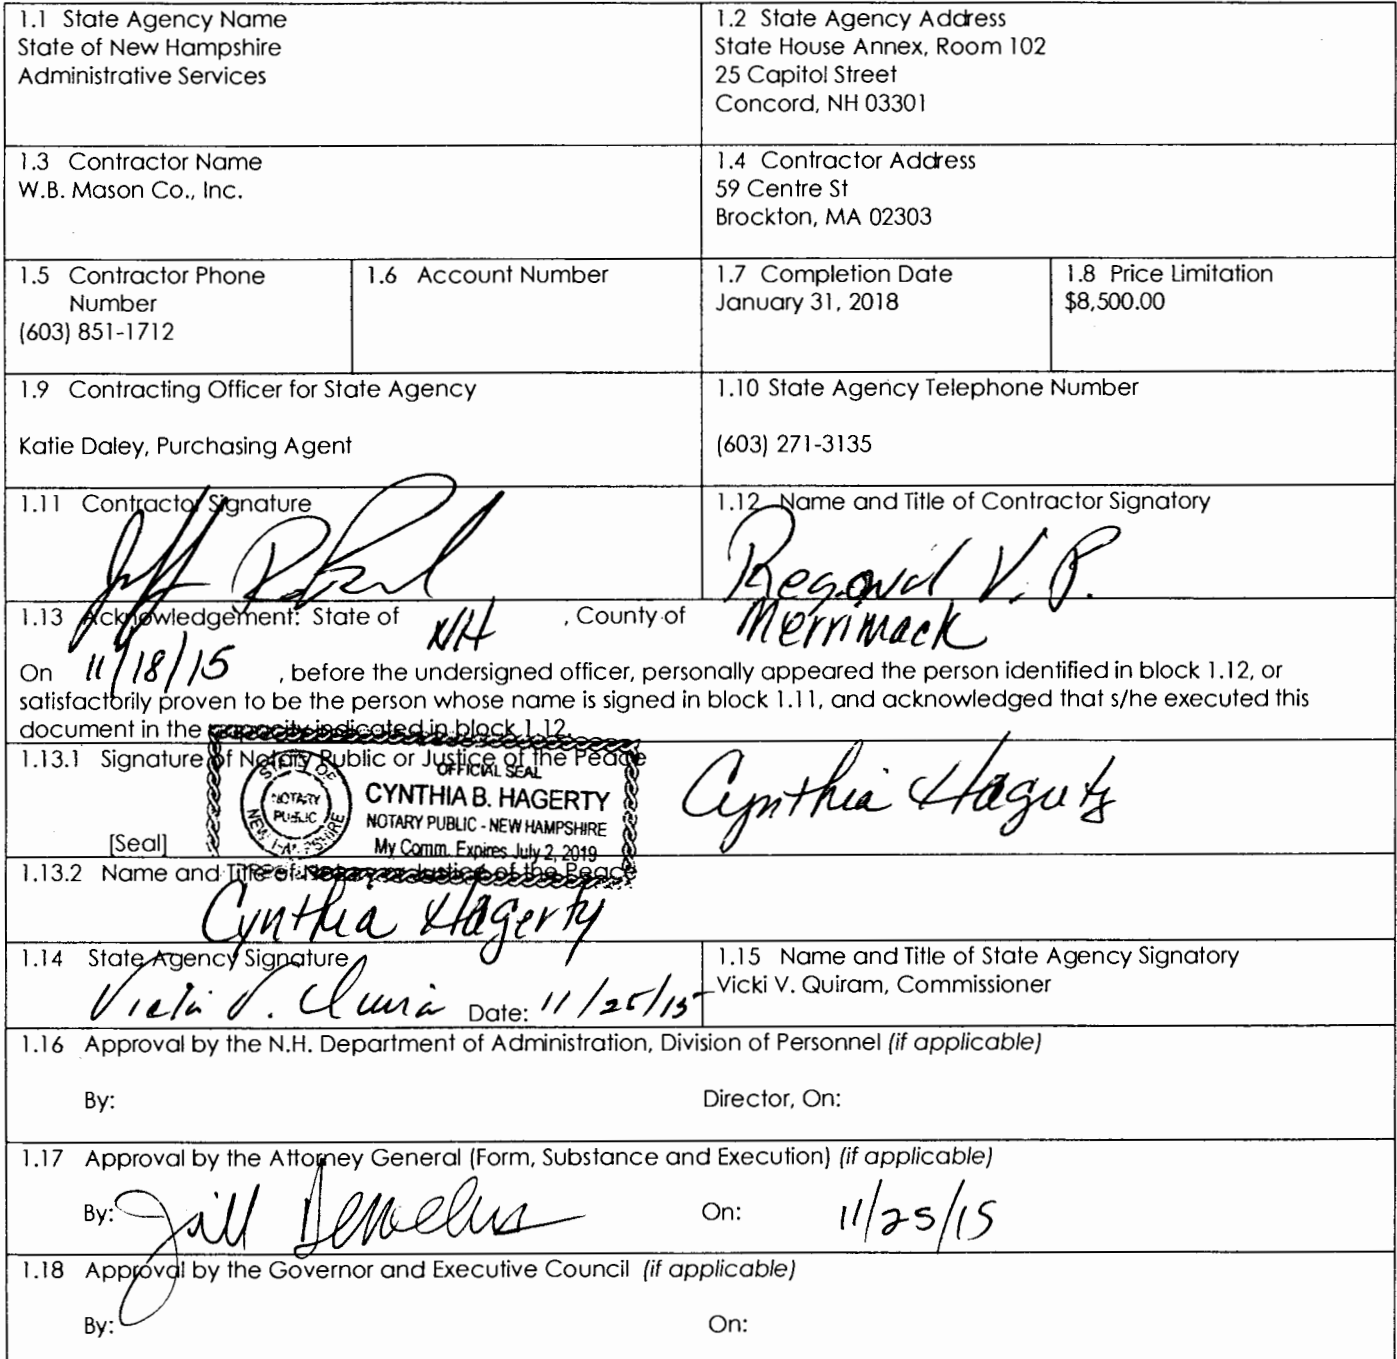 1.1 State Agency Name
State of New Hampshire
Administrative Services
1.2 State Agency Address
State House Annex, Room 102
25 Capitol Street
Concord, NH 03301
1.3 Contractor Name
W.B. Mason Co., Inc.
1.4 Contractor Address
59 Centre St
Brockton, MA 02303
1.5 Contractor Phone
Number
(603) 851-1712
1.6 Account Number
1.7 Completion Date
January 31, 2018
1.8 Price Limitation
$8,500.00
1.9 Contracting Officer for State Agency
Katie Daley, Purchasing Agent
1.10 State Agency Telephone Number
(603) 271-3135
1.11 Contractor Signature
1.12 Name and Title of Contractor Signatory
Regional V.P.
1.13 Acknowledgement: State of NH , County of Merrimack
On 11/18/15 , before the undersigned officer, personally appeared the person identified in block 1.12, or
satisfactorily proven to be the person whose name is signed in block 1.11, and acknowledged that s/he executed this
document in the capacity indicated in block 1.12.
1.13.1 Signature of Notary Public or Justice of the Peace
OFFICIAL SEAL
CYNTHIA B. HAGERTY
NOTARY PUBLIC - NEW HAMPSHIRE
My Comm. Expires July 2, 2019
STATE OF
NOTARY
PUBLIC
NEW HAMPSHIRE
Cynthia Hagerty
[Seal]
1.13.2 Name and Title of Notary or Justice of the Peace
Cynthia Hagerty
1.14 State Agency Signature
Vicki V. Quiram Date: 11/25/15
1.15 Name and Title of State Agency Signatory
Vicki V. Quiram, Commissioner
1.16 Approval by the N.H. Department of Administration, Division of Personnel (if applicable)
By: Director, On:
1.17 Approval by the Attorney General (Form, Substance and Execution) (if applicable)
By: Jill On: 11/25/15
1.18 Approval by the Governor and Executive Council (if applicable)
By: On: